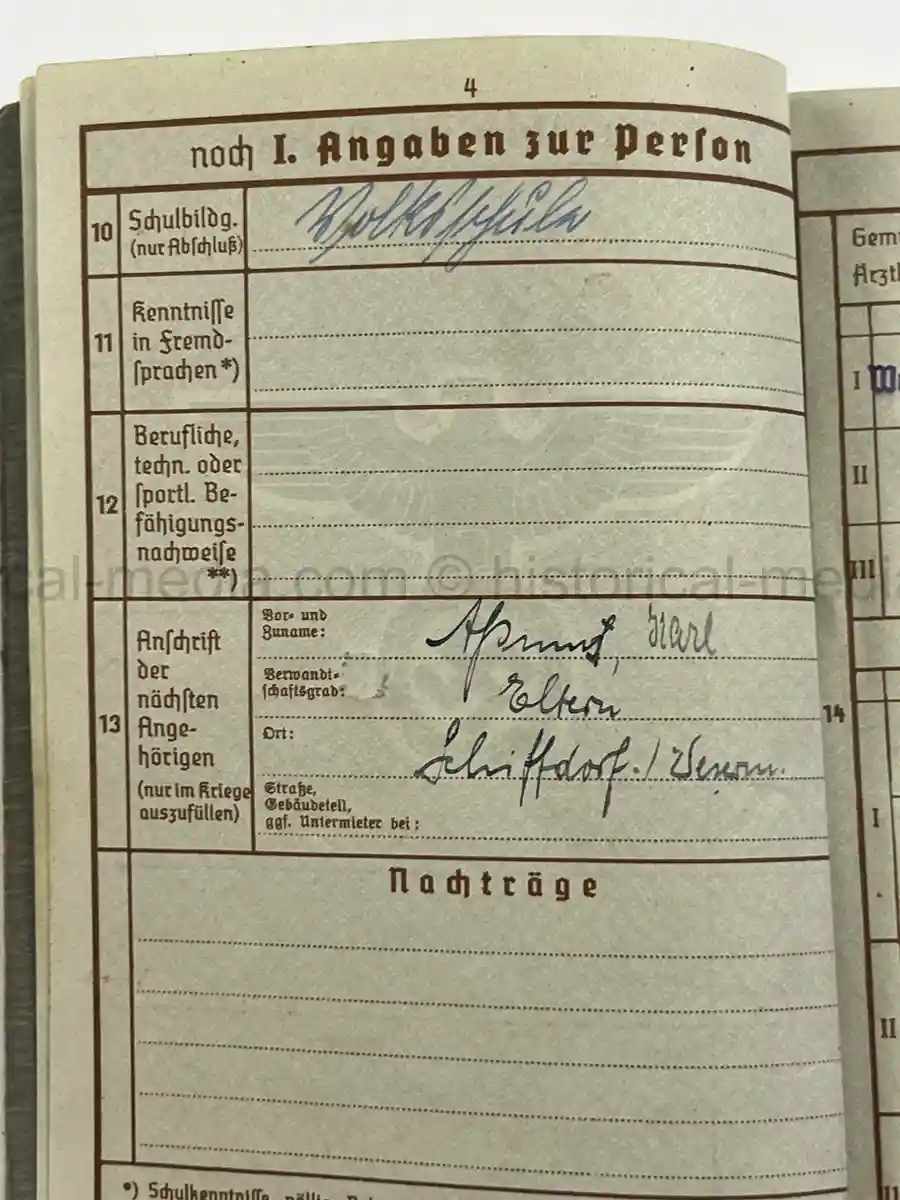 4
noch I. Angaben zur Person
10 Schulbildg. (nur Abschluß)
Volksschule
11 Kenntnisse in Fremd- sprachen*)
12 Berufliche, techn. oder sportl. Be- fähigungs- nachweise **)
historical-media.com © historical-media
13 Anschrift der nächsten Ange- hörigen (nur im Kriege auszufüllen)
Vor- und Zuname:
Karl
Verwandt- schaftsgrad:
Eltern
Ort:
Schiffdorf
Straße, Gebäudeteil, ggf. Untermieter bei:
Nachträge
*) Schulkenntnisse
14
I
II
III
I
II